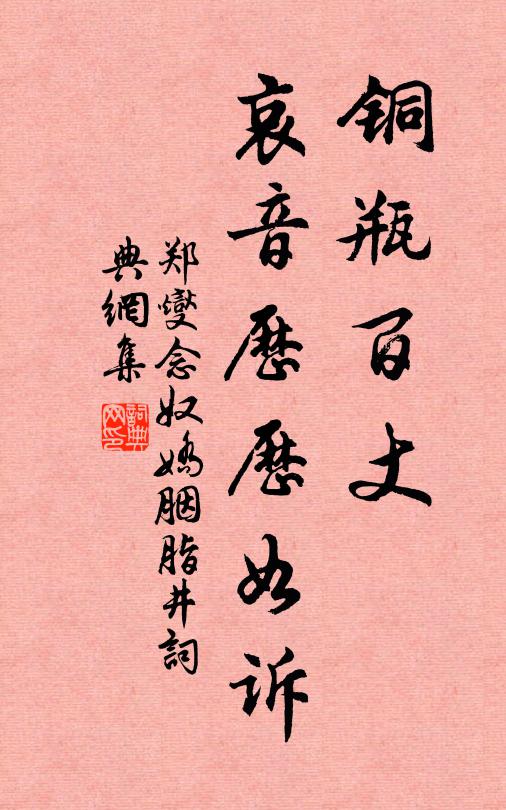 铜瓶百丈
哀音历历如诉
郑燮念奴娇胭脂井词
典网集
词典网印